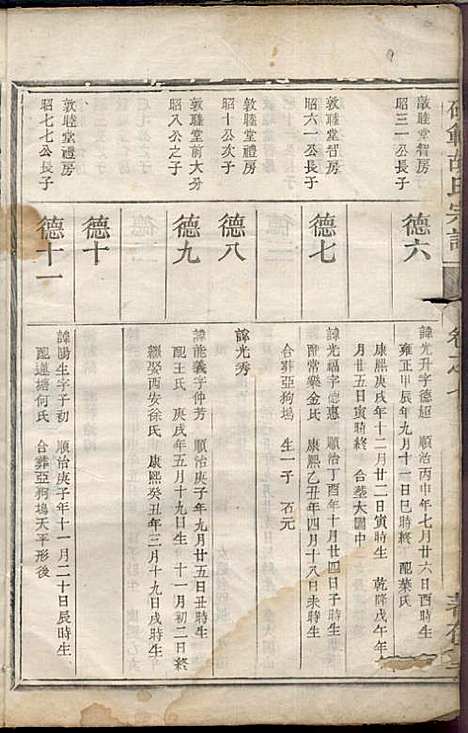 胡氏宗譜
卷之七
敦睦堂智房
昭三一公長子
德六
諱光升字德超 順治丙申年七月廿六日酉時生
雍正甲辰年九月十一日巳時終 配葉氏
康熙庚戌年十二月廿二日寅時生 乾隆戊午年
月廿五日寅時終 合塟大圓中
敦睦堂智房
昭六一公長子
德七
諱光福字德惠 順治丁酉年十月廿四日子時生
配常樂金氏 康熙乙丑年四月十八日未時生
合葬亞狗塢 生一子 石元
敦睦堂禮房
昭十公次子
德八
諱光秀
敦睦堂前大分
昭八公之子
德九
諱能義字仲芳 順治庚子年九月廿五日丑時生
配王氏 庚戌年五月十九日生 十一月初二日終
繼娶西安徐氏 康熙癸丑年三月十九日戌時生
德十
敦睦堂禮房
昭七七公長子
德十一
諱陽生字子初 順治庚子年十一月二十日辰時生
配蓮塘何氏 合葬亞狗塢天平形後